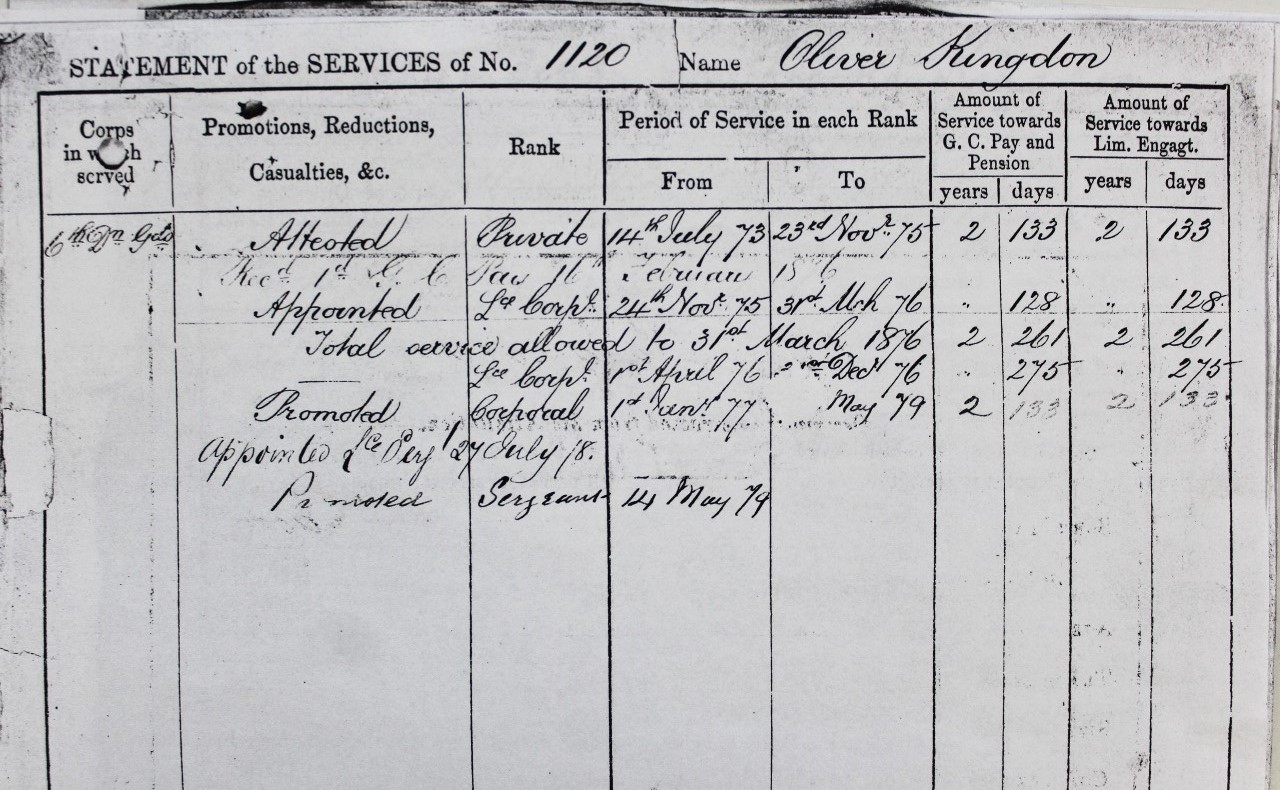 STATEMENT of the SERVICES of No. 1120 Name Oliver Kingdon
Corps in which served
Promotions, Reductions, Casualties, &c.
Rank
Period of Service in each Rank
From To
Amount of Service towards G. C. Pay and Pension
years days
Amount of Service towards Lim. Engagt.
years days
6th Dn Gds Attested Private 14th July 73 23rd Novr. 75 2 133 2 133
Recd 1d G. C. Pay 16th February
Appointed Lce Corpl. 24th Novr. 75 31st Mch 76 " 128 " 128
Total service allowed to 31st March 1876 2 261 2 261
Lce Corpl. 1st April 76 Decr 76 " 275 " 275
Promoted Corporal 1st Jany 77 May 79 2 133 2 133
Appointed Lce Sergt 27 July 78.
Promoted Sergeant 14 May 79